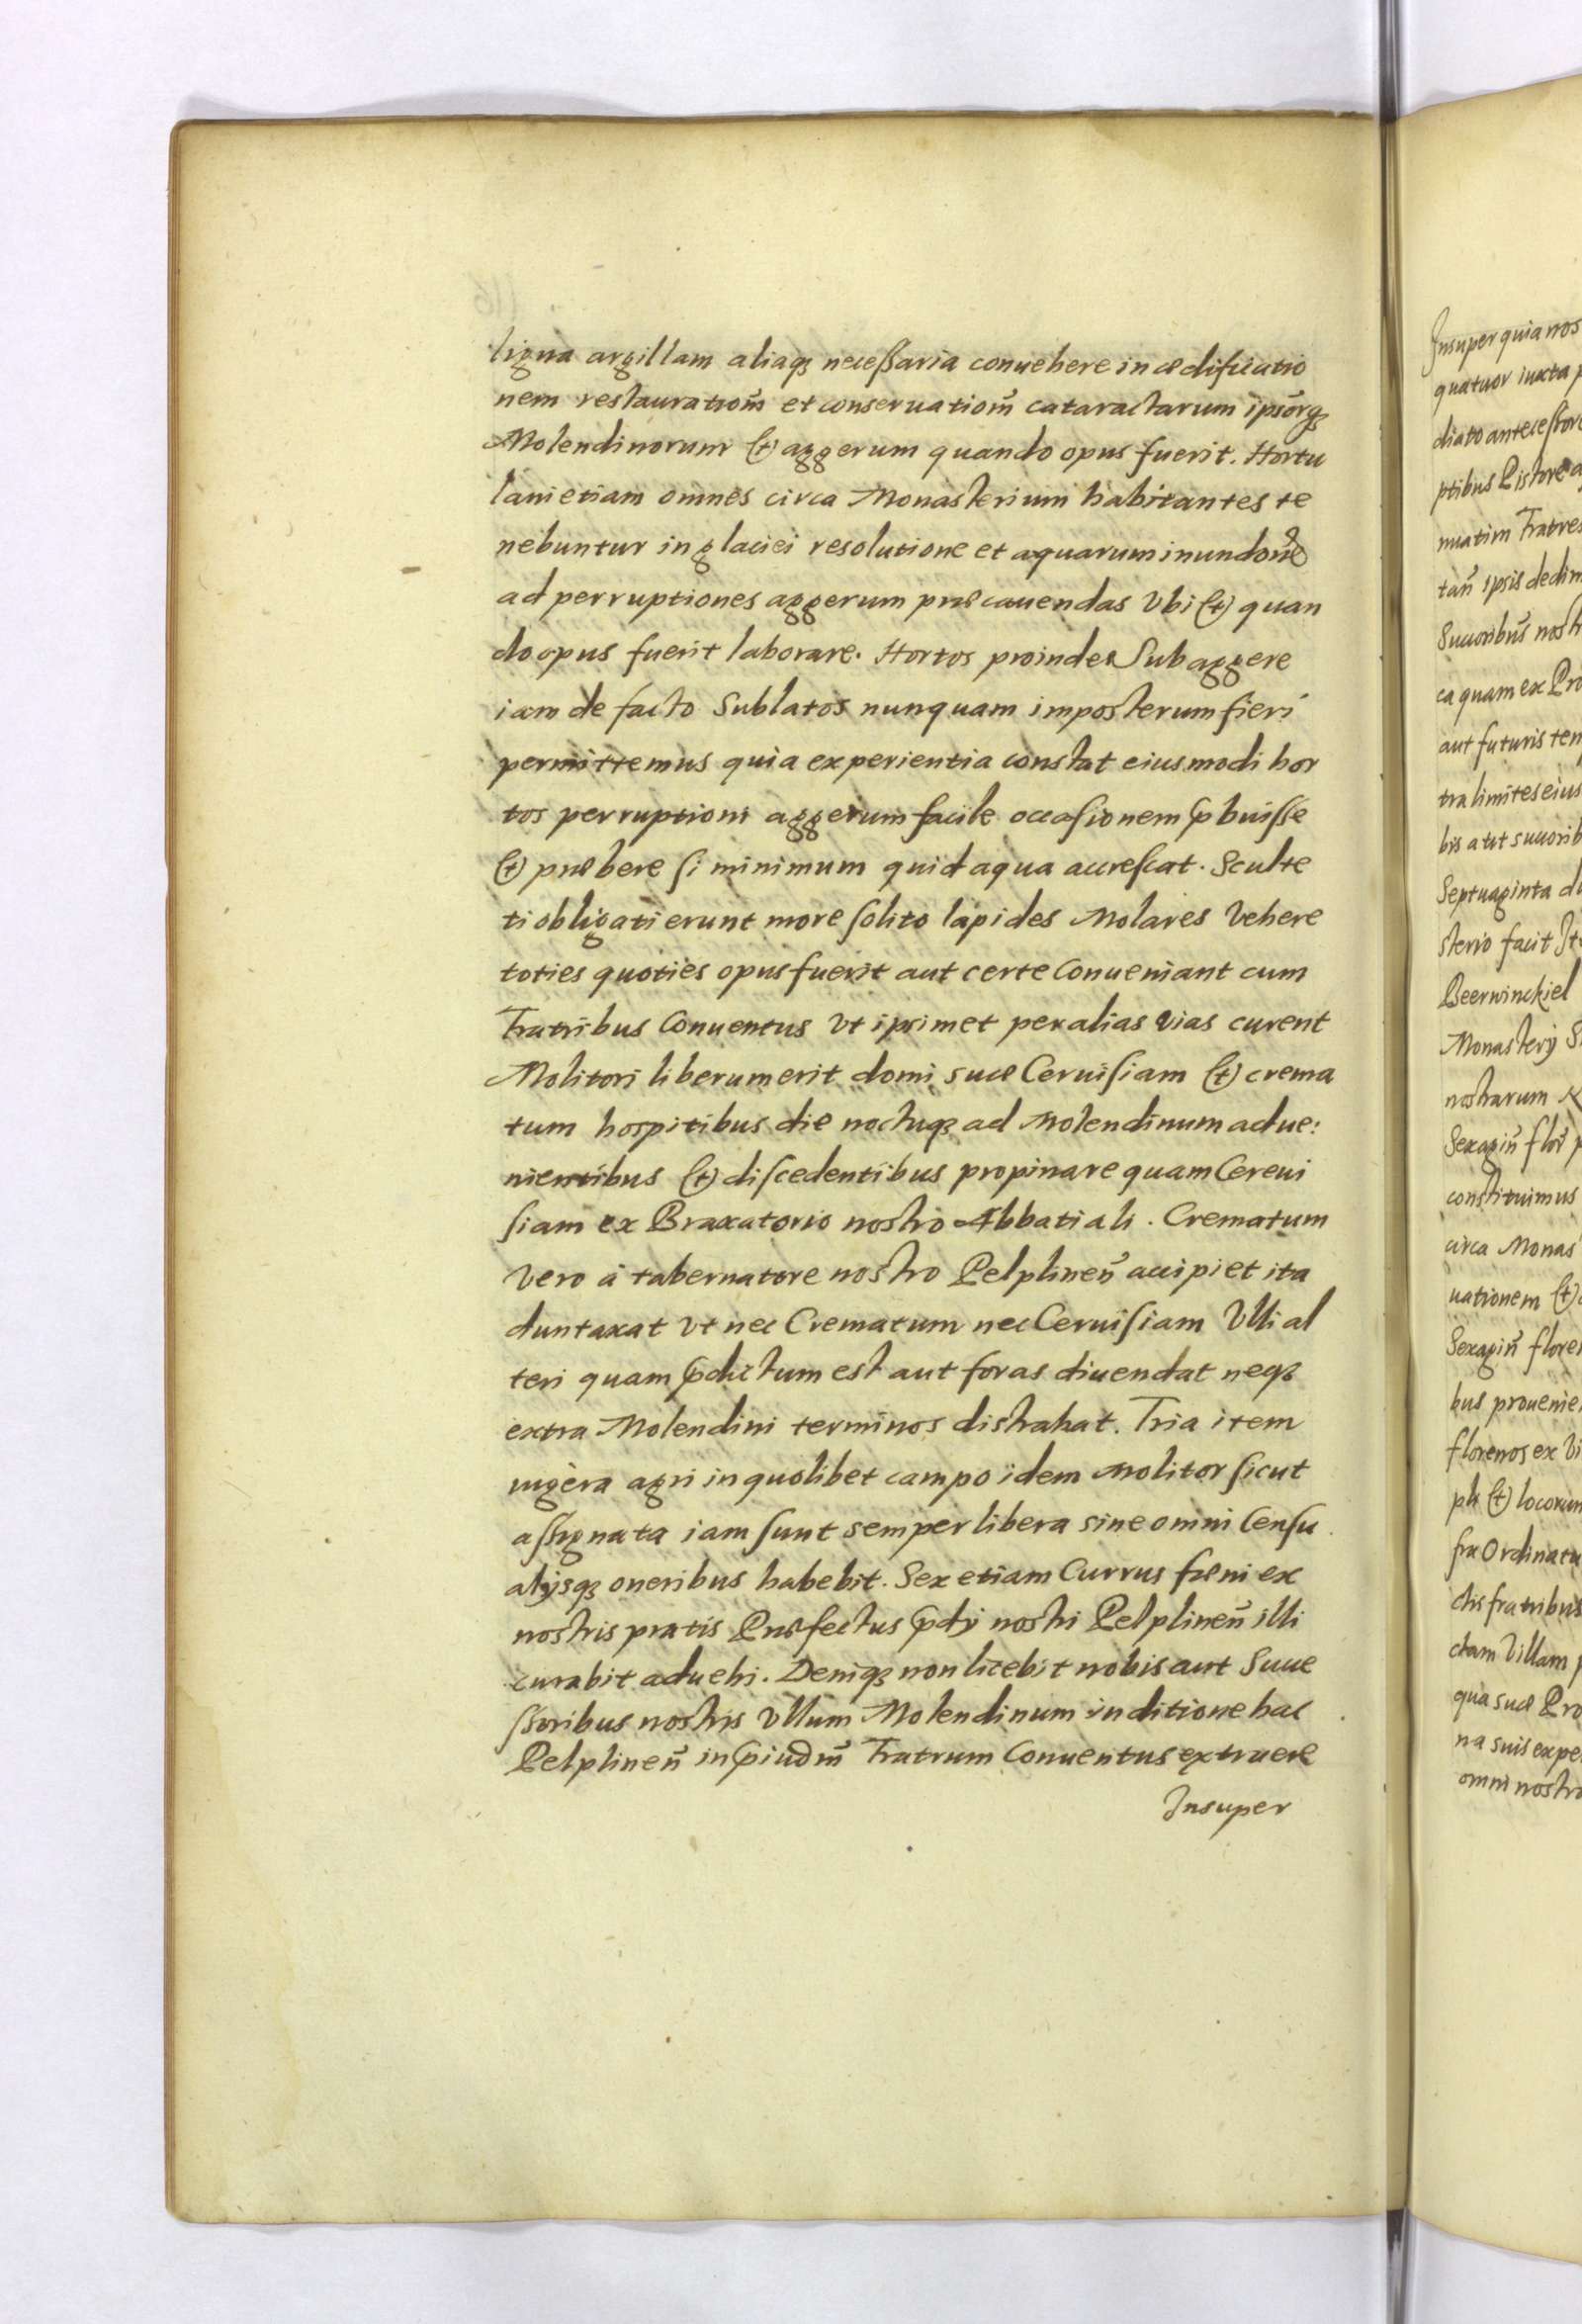 ligna argillam aliaqꝫ neceßaria conuehere in ædificatio
nem restaurationẽ et conseruationẽ cataractarum ipsorqꝫ
Molendinorum & aggerum quando opus fuerit. Hortu
lani etiam omnes circa Monasterium habitantes te
nebuntur in glaciei resolutione et aquarum inundone
ad perruptiones aggerum præcauendas Vbi & quan
do opus fuerit laborare. Hortos proinde Sub aggere
iam de facto Sublatos nunquam imposterum fieri
permittemus quia experientia constat eiusmodi hor
tos perruptioni aggerum facile occasionem p̃buisse
& præbere si minimum quid aqua accrescat. Sculte
ti obligati erunt more solito lapides Molares Vehere
toties quoties opus fuerit aut certe Conueniant cum
Fratribus Conuentus Vt ipsimet per alias vias curent
Molitori liberum erit domi suæ Ceruisiam & crema
tum hospitibus die noctuqꝫ ad Molendinum adue:
nientibus & discedentibus propinare quam Cereui
siam ex Braxatorio nostro Abbatiali. Crematum
Vero à tabernatore nostro Pelplineñ accipiet ita
duntaxat Vt nec Crematum nec Ceruisiam Vlli al
teri quam p̃dictum est aut foras diuendat neqꝫ
extra Molendini terminos distrahat. Tria item
iugera agri in quolibet campo idem Molitor sicut
assignata iam sunt semper libera sine omni Censu
alÿsqꝫ oneribus habebit. Sex etiam Currus fæni ex
nostris pratis Præfectus p̃dÿ nostri Pelplineñ illi
curabit aduehi. Deniqꝫ non licebit nobis aut Succe
ssoribus nostris Vllum Molendinum in ditione hac
Pelplineñ in p̃iudm̃ Fratrum Conuentus extruere
Insuper
Insuper quia nos
quatuor iuxta p
diato antecessore
ptibus Pistore a
nuatim Fratres
tañ ipsis dedim
Succoribus nost
ca quam ex Pro
aut futuris tem
tra limites eius
bis aut succorib
Septuaginta du
sterio facit It
Beerwinckiel
Monasterÿ S
nostrarum
Sexagiñ flor p
constituimus
circa Monas
uationem &
Sexagiñ flore
bus prouenie
florenos ex Vi
pli & locorum
fra Ordinatu
ctis fratribus
ctam Villam p
qua suæ Pro
na suis expe
omni nostro